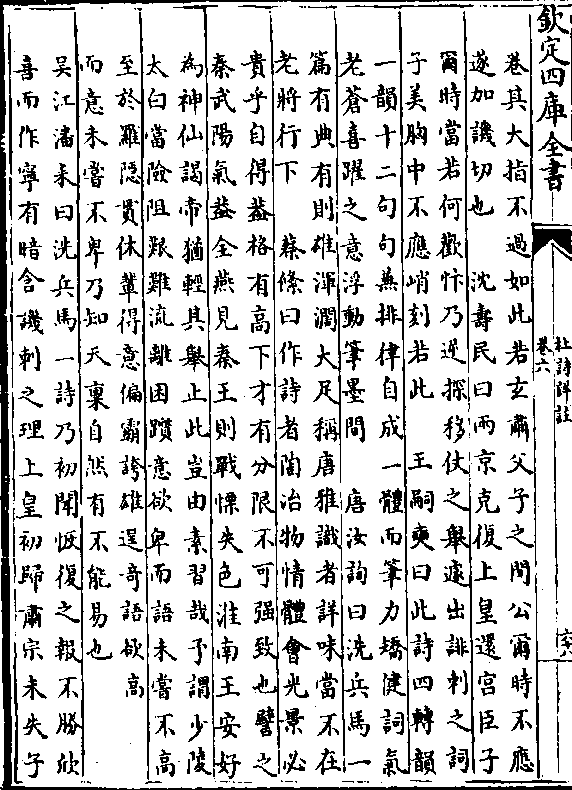 欽定四庫全書
杜詩詳註
卷六
六八
巻其大指不過如此若玄肅父子之間公爾時不應
遂加譏切也　沈壽民曰兩京克復上皇還宮臣子
爾時當若何歡忭乃逆探移仗之舉遽出誹刺之詞
子美胸中不應峭刻若此　王嗣奭曰此詩四轉韻
一韻十二句句兼排律自成一體而筆力矯健詞氣
老蒼喜躍之意浮動筆墨間　唐汝詢曰洗兵馬一
篇有典有則雄渾濶大足稱唐雅識者詳味當不在
老將行下　蔡絛曰作詩者陶冶物情體會光景必
貴乎自得葢格有高下才有分限不可强致也譬之
秦武陽氣葢全燕見秦王則戰慄失色淮南王安好
為神仙謁帝猶輕其舉止此豈由素習哉予謂少陵
太白當險阻艱難流離困躓意欲卑而語未嘗不高
至於羅隱貫休輩得意偏霸誇雄逞奇語欲高
而意未嘗不卑乃知天稟自然有不能易也
吳江潘耒曰洗兵馬一詩乃初聞恢復之報不勝欣
喜而作寧有暗含譏刺之理上皇初歸肅宗未失子